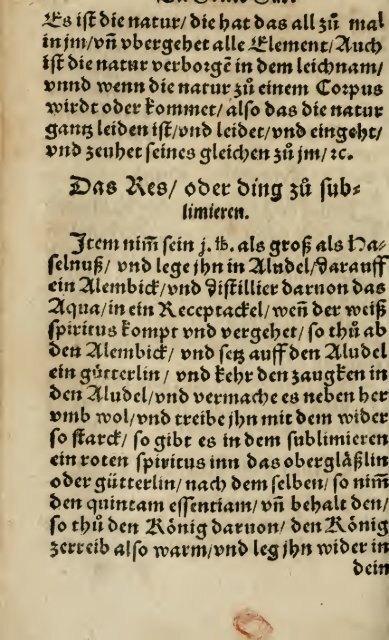 Es ist die natur/ die hat das all zů mal
in jm/ vñ vbergehet alle Element/ Auch
ist die natur verborgẽ in dem leichnam/
vnnd wenn die natur zů einem Corpus
wirdt oder kommet/ also das die natur
gantz leiden ist/ vnd leidet/ vnd eingeht/
vnd zeuhet seines gleichen zů jm/ ꝛc.
Das Res/ oder ding zů sub⸗
limieren.
Item nim̃ sein j. ℔. als groß als Ha⸗
selnuß/ vnd lege jhn in Aludel/ darauff
ein Alembick/ vnd distillier daruon das
Aqua/ in ein Receptackel/ weñ der weiß
spiritus kompt vnd vergehet/ so thů ab
den Alembick/ vnd setz auff den Aludel
ein gütterlin/ vnd kehr den zaugken in
den Aludel/ vnd vermache es neben her
vmb wol/ vnd treibe jhn mit dem wider
so starck/ so gibt es in dem sublimieren
ein roten spiritus inn das obergläßlin
oder gütterlin/ nach dem selben/ so nim̃
den quintam essentiam/ vñ behalt den/
so thů den König daruon/ den König
zerreib also warm/ vnd leg jhn wider in
dein